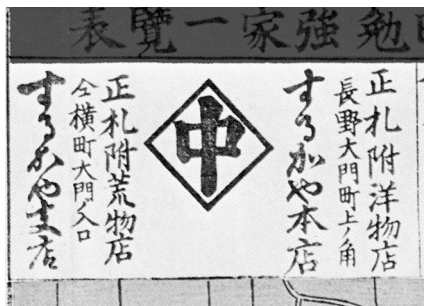 勉強家一覧表
正札附洋物店
長野大門町上ノ角
するがや本店
中
正札附荒物店
仝横町大門入口
するがや支店